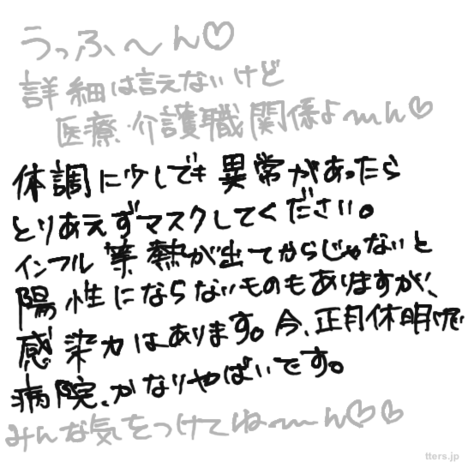 うっふ〜ん♡
詳細は言えないけど
医療・介護職関係よ〜ん♡
体調に少しでも異常があったら
とりあえずマスクしてください。
インフル等熱が出てからじゃないと
陽性にならないものもありますが、
感染力はあります。今、正月休明けで
病院、かなりやばいです。
みんな気をつけてね〜ん♡♡
tters.jp